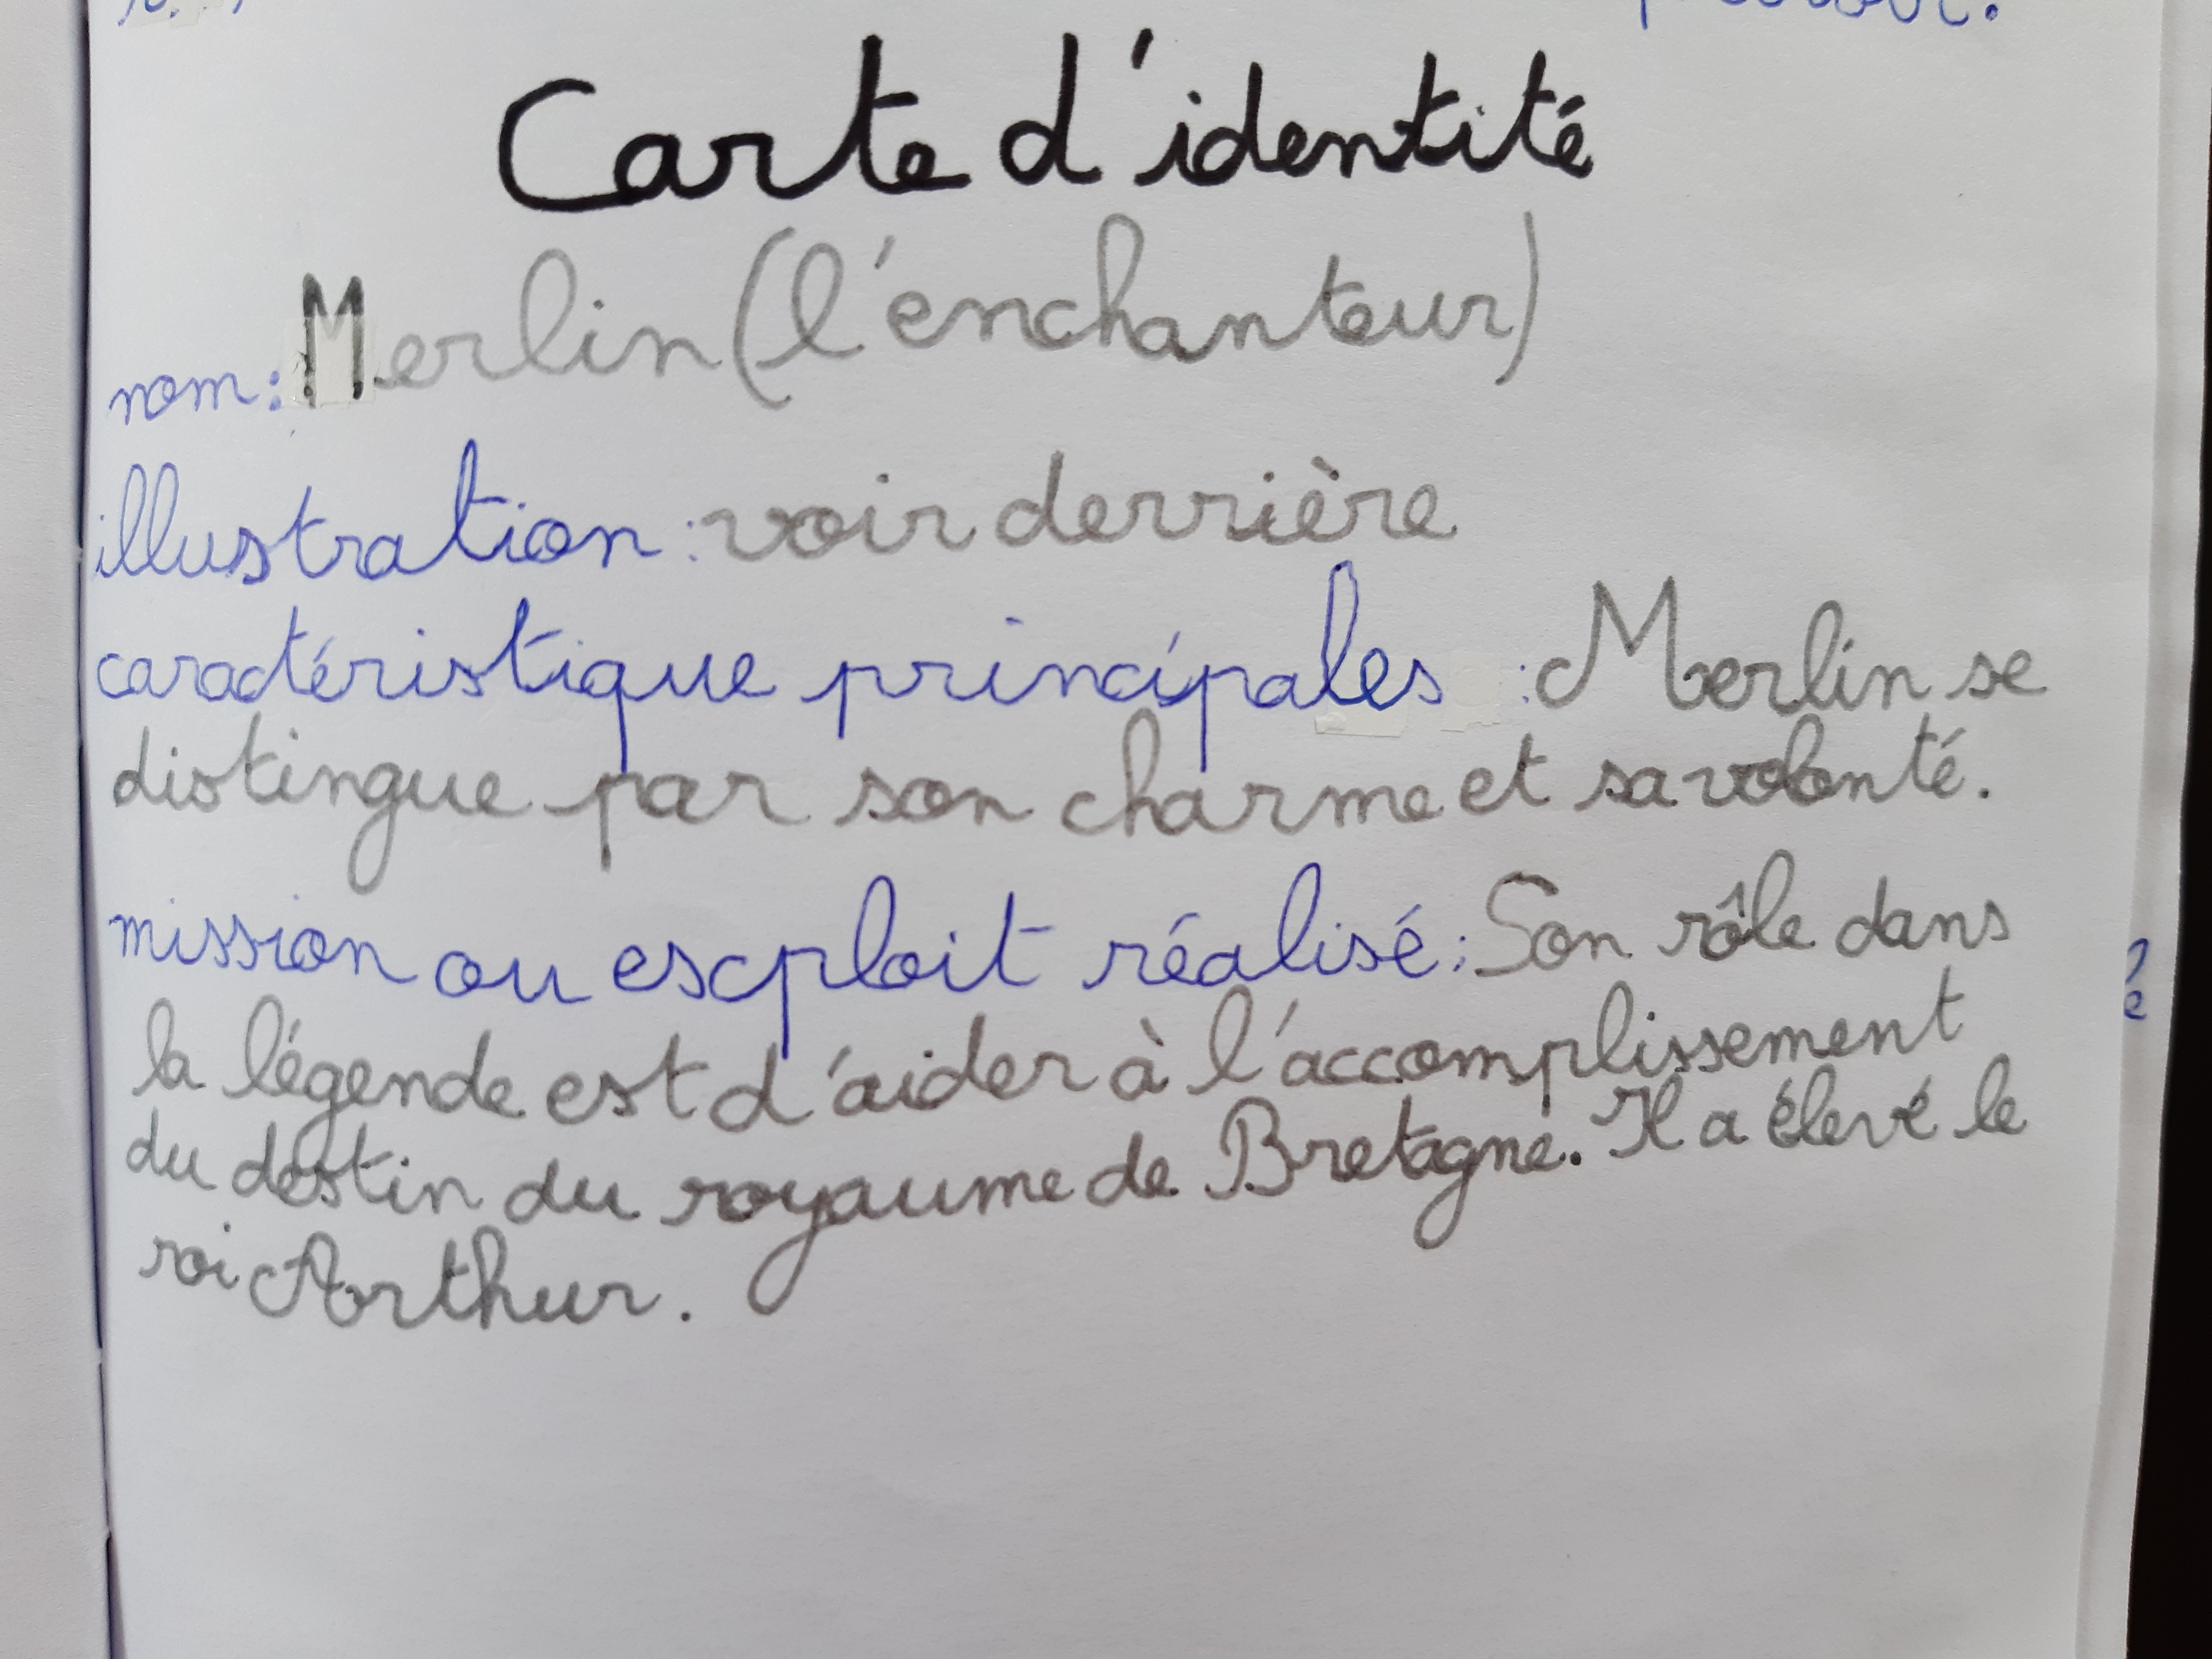 Carte d'identité
nom: Merlin (l'enchanteur)
illustration : voir derrière
caractéristique principales : Merlin se
distingue par son charme et sa volonté.
mission ou exploit réalisé : Son rôle dans
la légende est d'aider à l'accomplissement
du destin du royaume de Bretagne. Il a élevé le
roi Arthur.